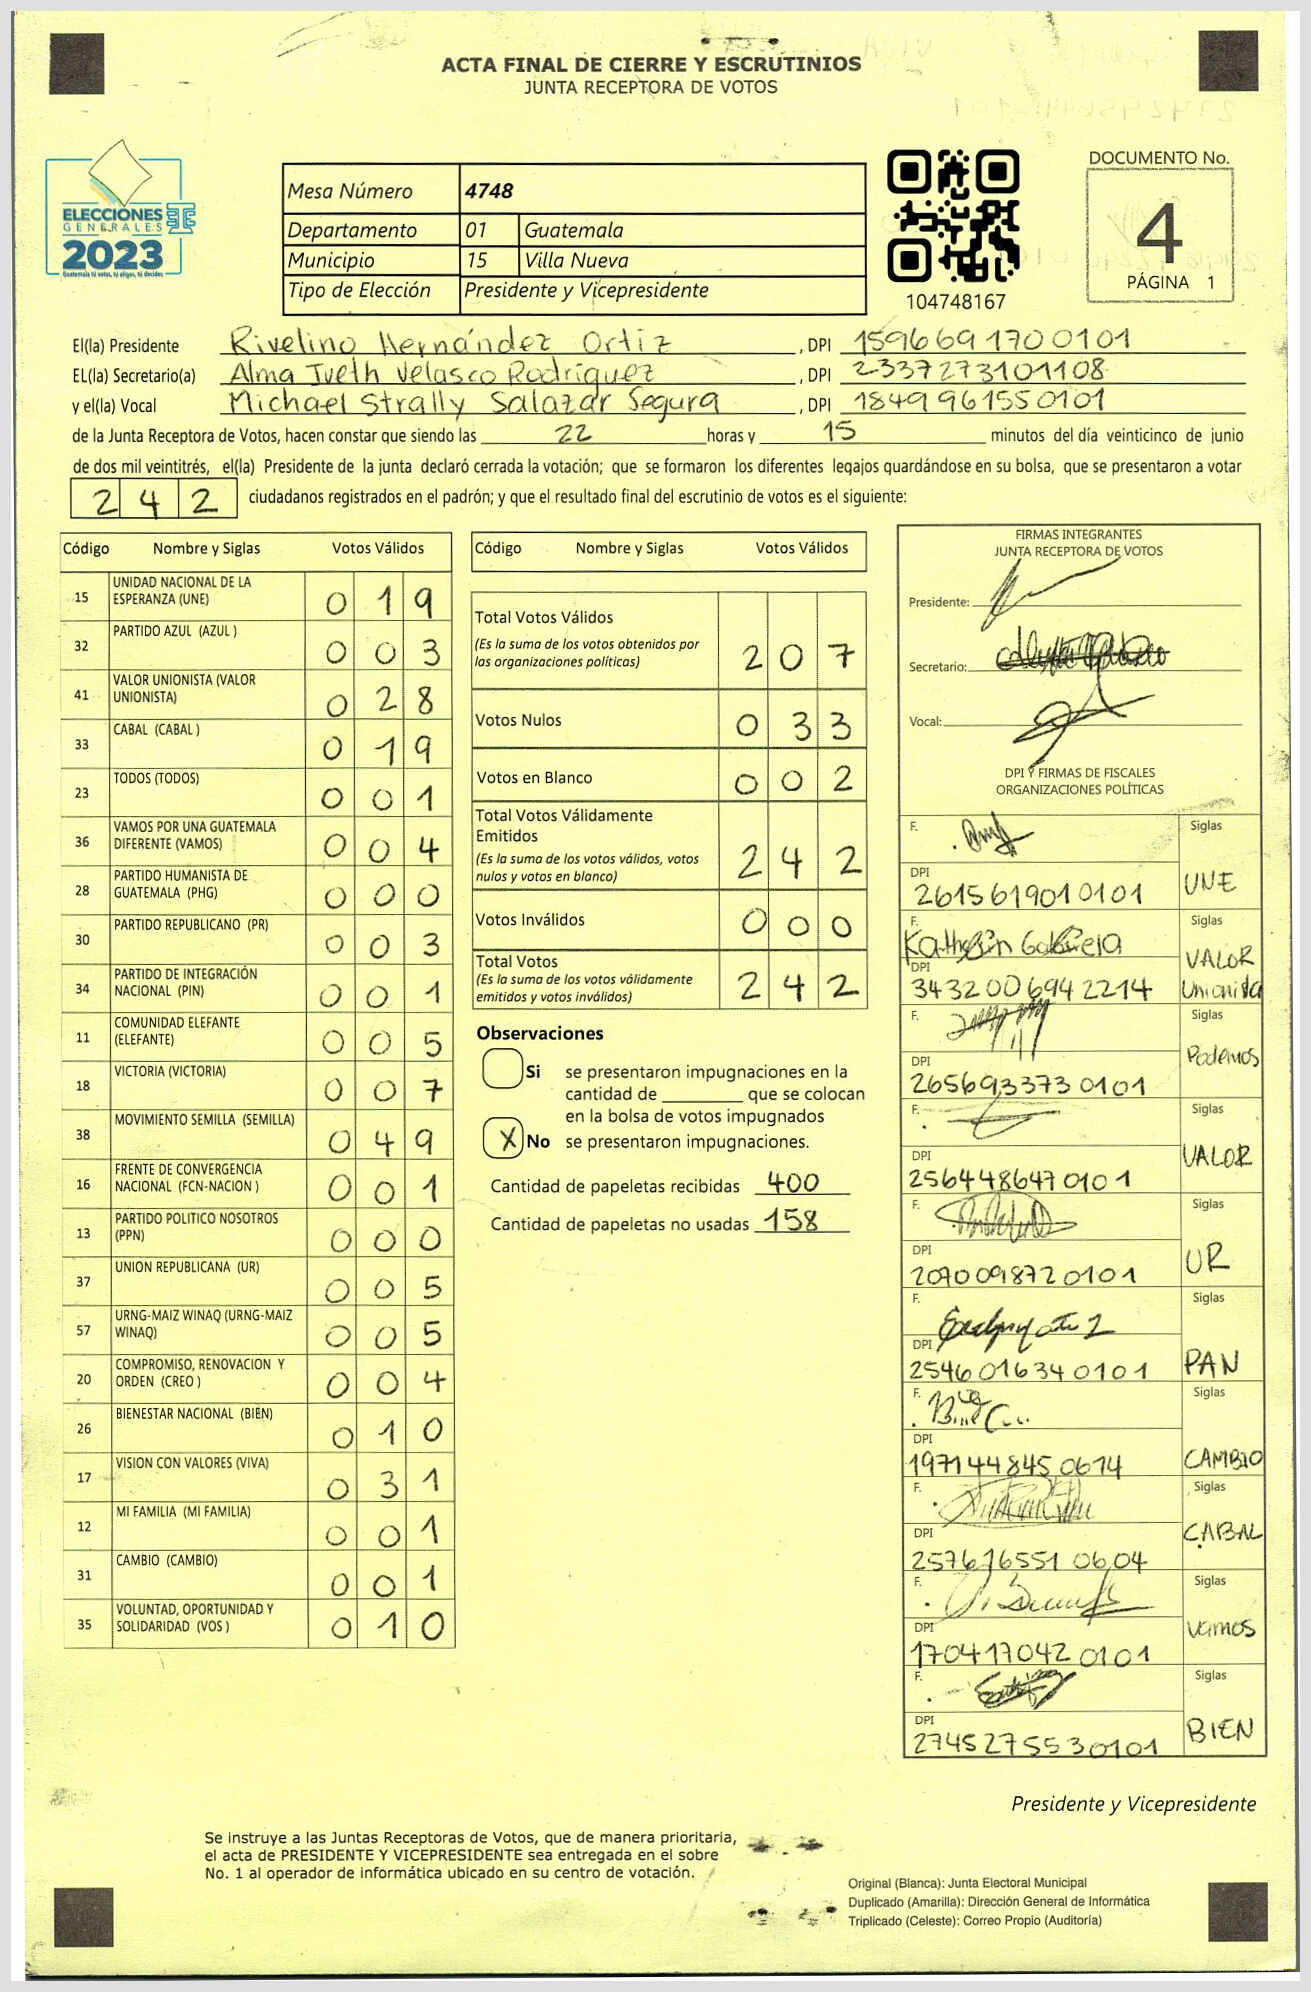 ACTA FINAL DE CIERRE Y ESCRUTINIOS
JUNTA RECEPTORA DE VOTOS
ELECCIONES
GENERALES
2023
Guatemala tú votas, tú eliges, tú decides
Mesa Número 4748
Departamento 01 Guatemala
Municipio 15 Villa Nueva
Tipo de Elección Presidente y Vicepresidente
104748167
DOCUMENTO No.
4
PÁGINA 1
El(la) Presidente Rivelino Hernández Ortiz, DPI 1596691700101
EL(la) Secretario(a) Alma Iveth Velasco Rodríguez, DPI 2337273101108
y el(la) Vocal Michael Strally Salazar Segura, DPI 1849961550101
de la Junta Receptora de Votos, hacen constar que siendo las 22 horas y 15 minutos del día veinticinco de junio
de dos mil veintitrés, el(la) Presidente de la junta declaró cerrada la votación; que se formaron los diferentes legajos guardándose en su bolsa, que se presentaron a votar
242 ciudadanos registrados en el padrón; y que el resultado final del escrutinio de votos es el siguiente:
Código Nombre y Siglas Votos Válidos
15 UNIDAD NACIONAL DE LA ESPERANZA (UNE) 019
32 PARTIDO AZUL (AZUL ) 003
41 VALOR UNIONISTA (VALOR UNIONISTA) 028
33 CABAL (CABAL ) 019
23 TODOS (TODOS) 001
36 VAMOS POR UNA GUATEMALA DIFERENTE (VAMOS) 004
28 PARTIDO HUMANISTA DE GUATEMALA (PHG) 000
30 PARTIDO REPUBLICANO (PR) 003
34 PARTIDO DE INTEGRACIÓN NACIONAL (PIN) 001
11 COMUNIDAD ELEFANTE (ELEFANTE) 005
18 VICTORIA (VICTORIA) 007
38 MOVIMIENTO SEMILLA (SEMILLA) 049
16 FRENTE DE CONVERGENCIA NACIONAL (FCN-NACION ) 001
13 PARTIDO POLITICO NOSOTROS (PPN) 000
37 UNION REPUBLICANA (UR) 005
57 URNG-MAIZ WINAQ (URNG-MAIZ WINAQ) 005
20 COMPROMISO, RENOVACION Y ORDEN (CREO ) 004
26 BIENESTAR NACIONAL (BIEN) 010
17 VISION CON VALORES (VIVA) 031
12 MI FAMILIA (MI FAMILIA) 001
31 CAMBIO (CAMBIO) 001
35 VOLUNTAD, OPORTUNIDAD Y SOLIDARIDAD (VOS ) 010
Código Nombre y Siglas Votos Válidos
Total Votos Válidos
(Es la suma de los votos obtenidos por las organizaciones políticas) 207
Votos Nulos 033
Votos en Blanco 002
Total Votos Válidamente Emitidos
(Es la suma de los votos válidos, votos nulos y votos en blanco) 242
Votos Inválidos 000
Total Votos
(Es la suma de los votos válidamente emitidos y votos inválidos) 242
Observaciones
Si se presentaron impugnaciones en la
cantidad de ________ que se colocan
en la bolsa de votos impugnados
X No se presentaron impugnaciones.
Cantidad de papeletas recibidas 400
Cantidad de papeletas no usadas 158
FIRMAS INTEGRANTES
JUNTA RECEPTORA DE VOTOS
Presidente:
Secretario:
Vocal:
DPI Y FIRMAS DE FISCALES
ORGANIZACIONES POLÍTICAS
F. Siglas
DPI 2615619010101 UNE
F. Katherin Gabriela Siglas
DPI 3432006942214 VALOR Unionista
F. Siglas
DPI 2656933730101 Podemos
F. Siglas
DPI 2564486470101 VALOR
F. Siglas
DPI 2070098720101 UR
F. Siglas
DPI 2546016340101 PAN
F. Siglas
DPI 1971448450614 CAMBIO
F. Siglas
DPI 2576765510604 CABAL
F. Siglas
DPI 1704170420101 Vamos
F. Siglas
DPI 2745275530101 BIEN
Presidente y Vicepresidente
Se instruye a las Juntas Receptoras de Votos, que de manera prioritaria,
el acta de PRESIDENTE Y VICEPRESIDENTE sea entregada en el sobre
No. 1 al operador de informática ubicado en su centro de votación.
Original (Blanca): Junta Electoral Municipal
Duplicado (Amarilla): Dirección General de Informática
Triplicado (Celeste): Correo Propio (Auditoría)